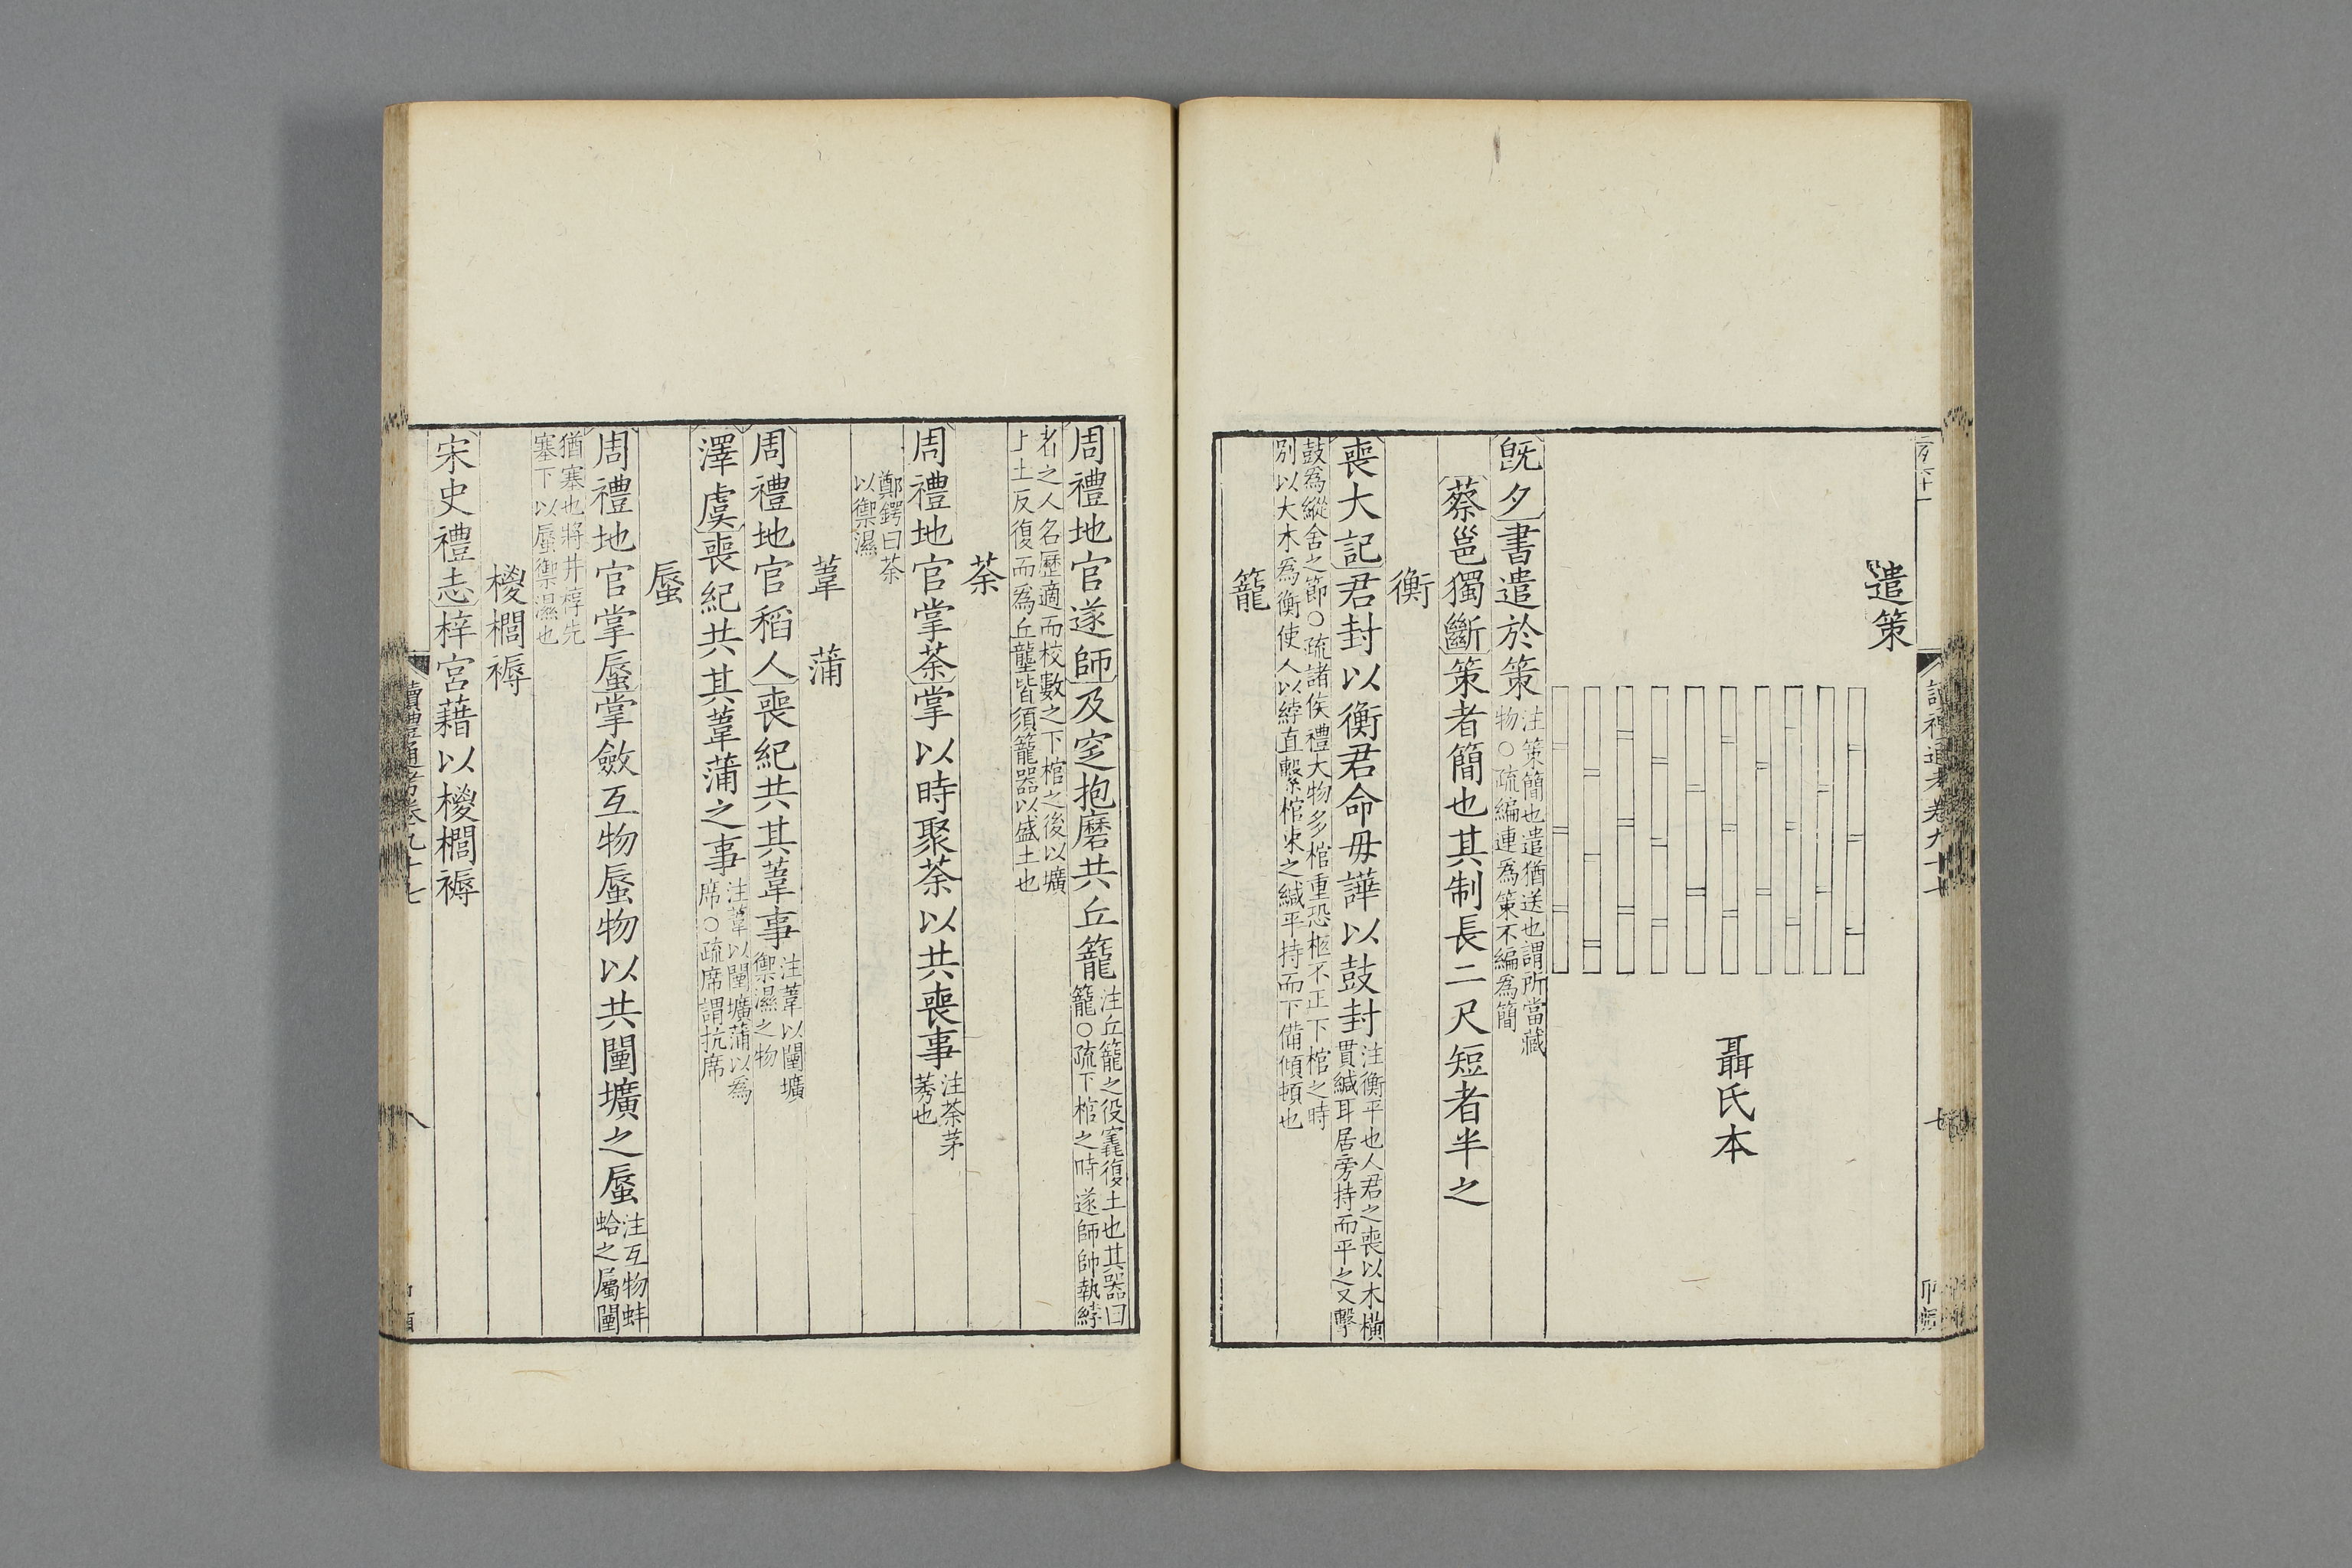 遣策
聶氏本
旣夕書遣於策注策簡也遣猶送也謂所當藏
物○疏編連為策不編為簡
蔡邕獨斷策者簡也其制長二尺短者半之
衡
喪大記君封以衡君命毋譁以鼓封注衡平也人君之喪以木橫
貫緘耳居旁持而平之又擊
鼓為縱舍之節○疏諸侯禮大物多棺重恐柩不正下棺之時
別以大木為衡使人以綍直繫棺束之緘平持而下備傾頓也
籠
周禮地官遂師及窆抱磨共丘籠注丘籠之役窆復土也其器曰
籠○疏下棺之時遂師帥執綍
者之人名歷適而校數之下棺之後以壙
上土反復而為丘壟皆須籠器以盛土也
荼
周禮地官掌荼掌以時聚荼以共喪事注荼茅
莠也
鄭鍔曰荼
以禦濕
葦 蒲
周禮地官稻人喪紀共其葦事注葦以闉壙
禦濕之物
澤虞喪紀共其葦蒲之事注葦以闉壙蒲以為
席○疏席謂抗席
蜃
周禮地官掌蜃掌斂互物蜃物以共闉壙之蜃注互物蚌
蛤之屬闉
猶塞也將井椁先
塞下以蜃禦濕也
椶櫚褥
宋史禮志梓宮藉以椶櫚褥
讀禮通考卷九十七
八